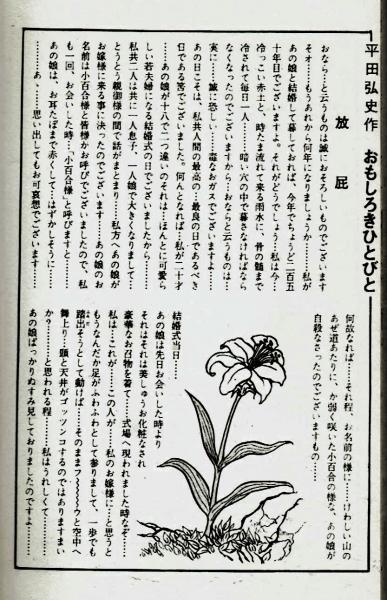 平田弘史作 おもしろきひとびと
放屁
おなら…と云うものは誠におそろしいものでございます
そオ…もうあれから何年になりましょうか……私が
あの娘と結婚して暮しておれば、今年でちょうど二百五
十年目でございますよ。それがどうでしょう…私は今…
冷っこい赤土と、時たま流れて来る雨水に、骨の髄まで
冷されて毎日一人……暗い穴の中で暮さなければなら
なくなったのでございますから…おならと云うものは
実に……誠に恐しい……毒なおガスでございますよ…
あの日こそは、私共人間の最高の…最良の日であるべき
日である筈でございました。何んとなれば…私が二十才
……あの娘が十八で二つ違いのそれは…ほんとに可愛ら
しい若夫婦になる結婚式の日でございましたから
私共二人は共に一人息子、一人娘で大きくなりまして
とうとう親御様の間で話がまとまり……私方へあの娘が
お嫁様に来る事に決ったのでございます……あの娘のお
名前は小百合様と皆様がお呼びでございましたので、私
も一回、お会いした時…「小百合様」と呼びますと…
あの娘は、お耳たぼまで赤くして…はずかしそうに……
……あゝ……思い出してもお可哀想でございます……
何故なれば……それ程、お名前の様に……けわしい山の
あぜ道あたりに、か弱く咲いた小百合の様な、あの娘が
自殺なさったのでございますもの…
結婚式当日……
あの娘は先日お会いした時より
それはそれは美しゅうお化粧なされ
豪華なお召物を着て……式場へ現われました時なぞ……
私は…これが……この人が……私のお嫁様に…と思うと
もうなんだか足がふわふわとして参りまして、一歩でも
踏出そうとして動けば……そのままフ〜〜〜ワと空中へ
舞上り…頭と天井がゴッツンコするのではありますまい
か?……と思われる程……私はうれしくて……
あの娘ばっかりぬすみ見しておりましたのですよ…